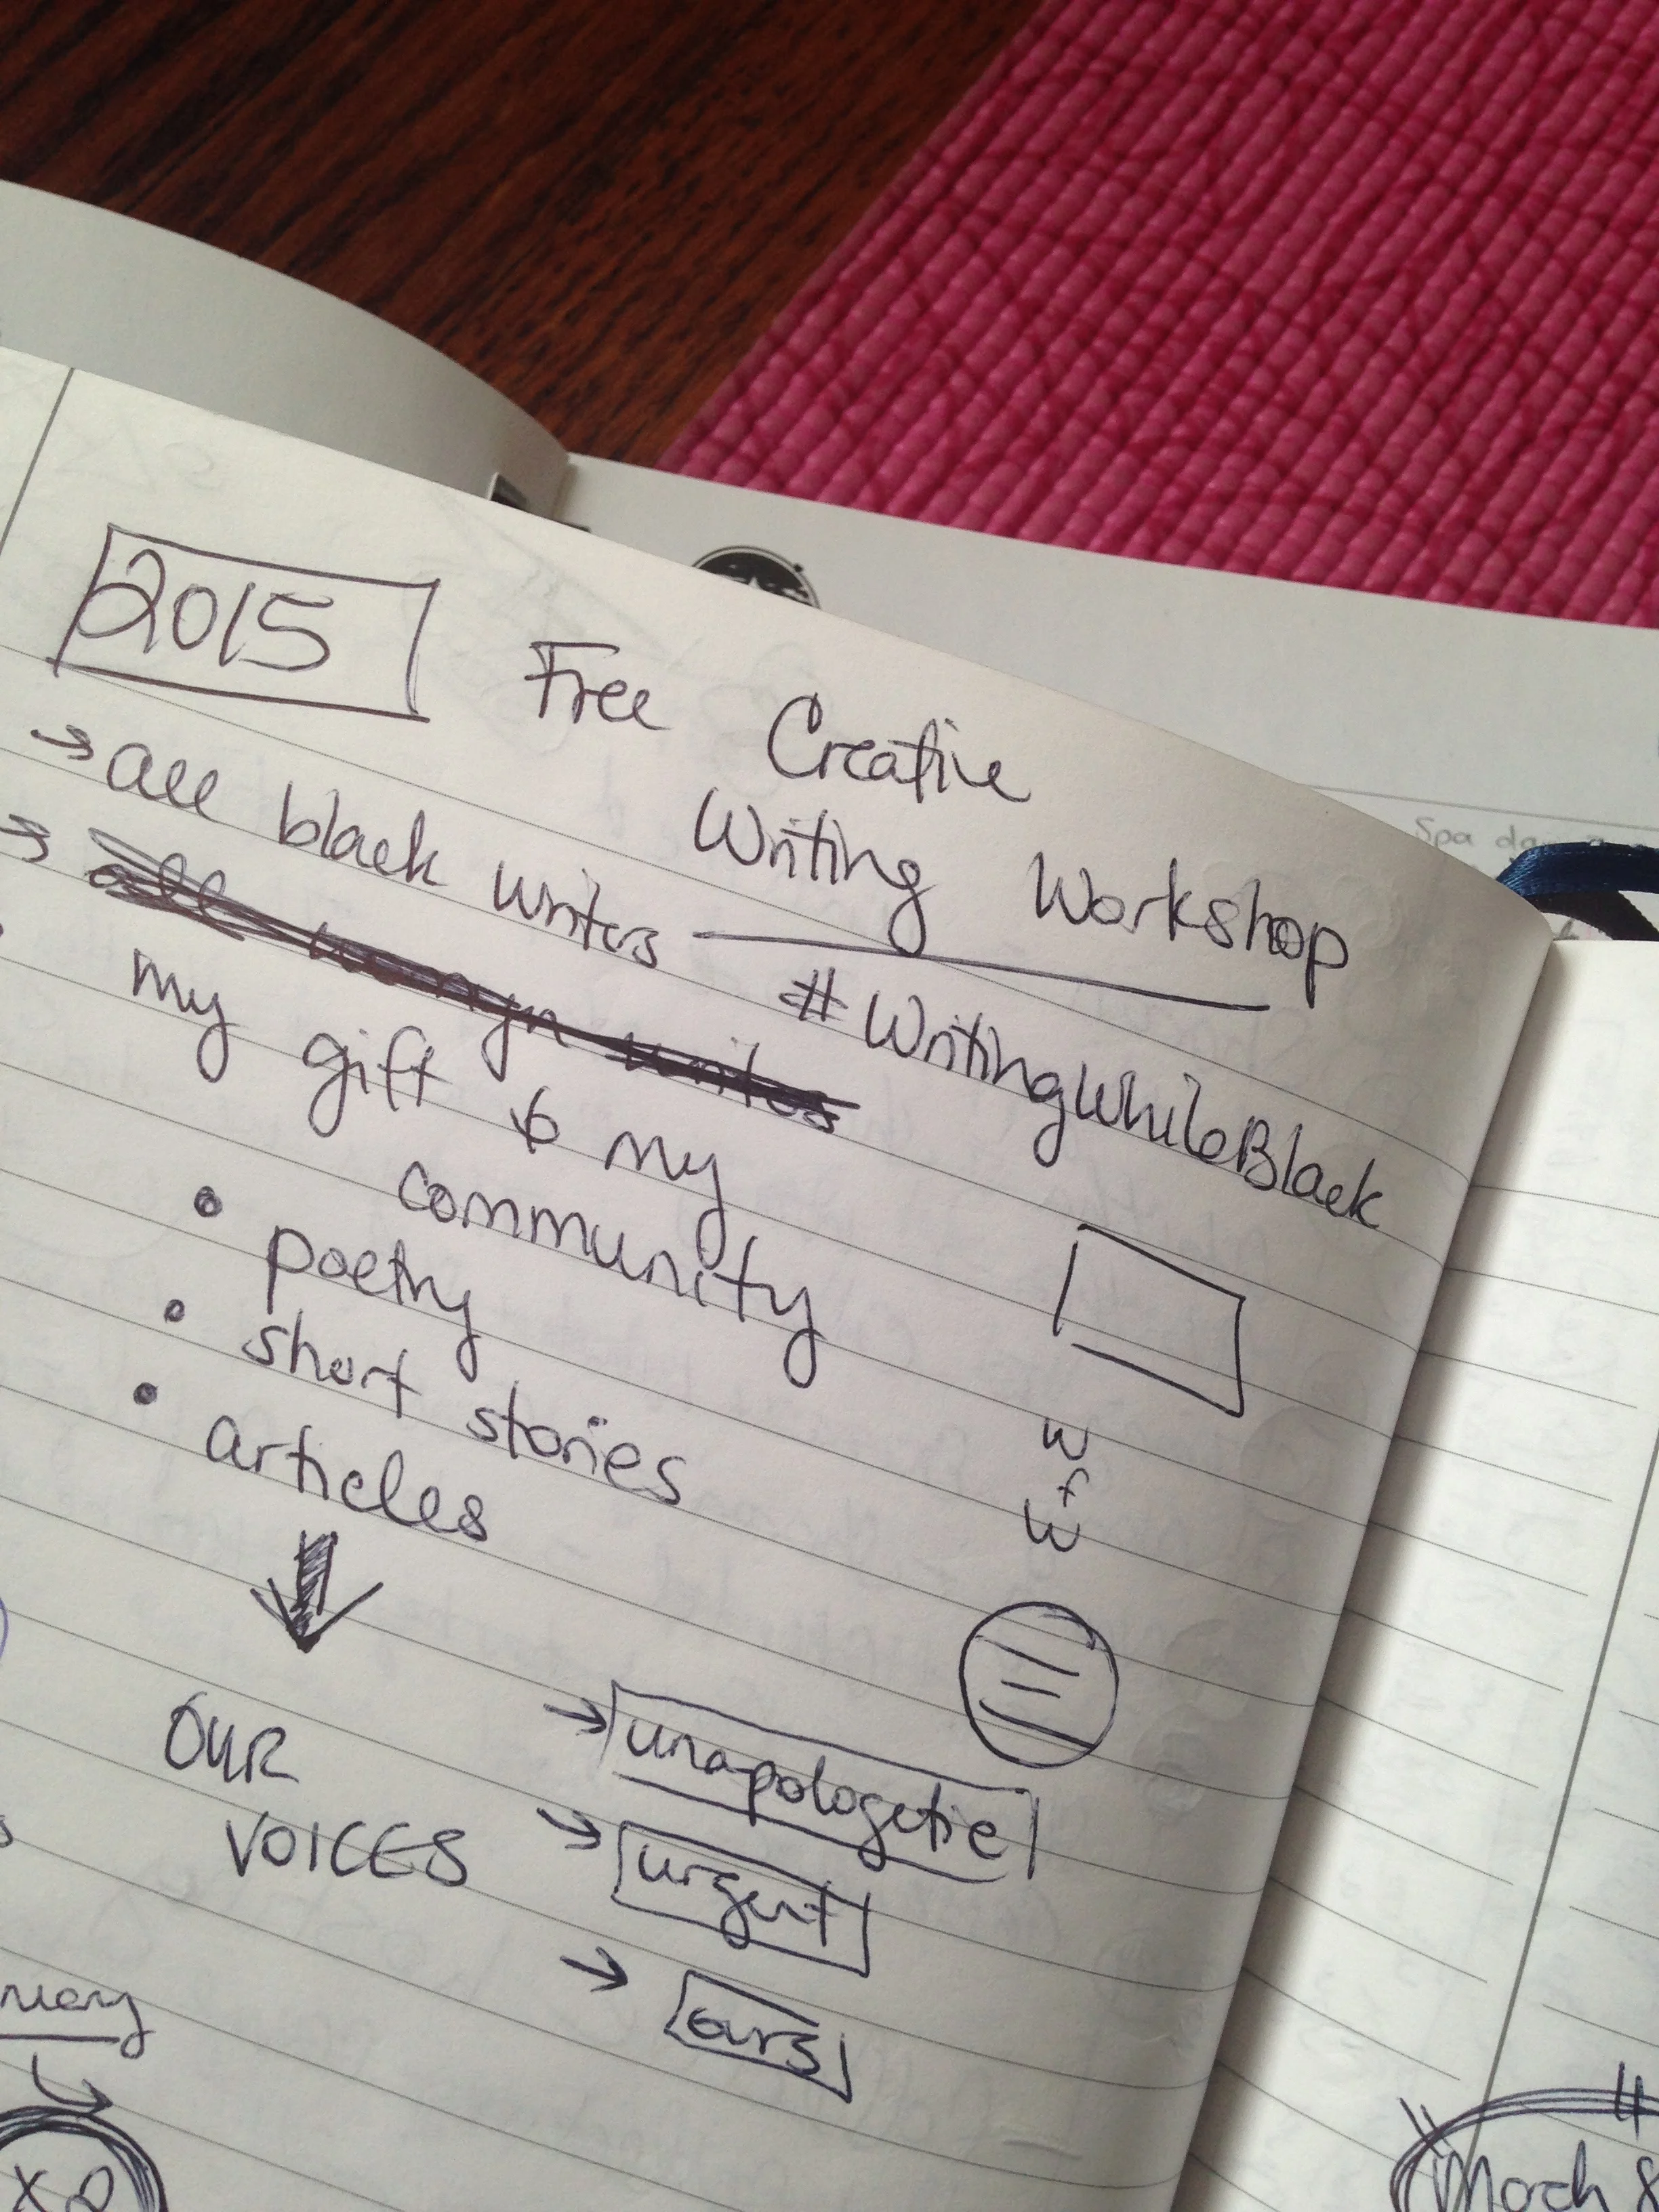 2015
Free Creative
Writing Workshop
→ all black writers
#WritingWhileBlack
→ all womyn writers
my gift to my
community
• poetry
• short stories
• articles
W
f
W
OUR
VOICES
→ unapologetic
→ urgent
→ ours
March 8
Spa